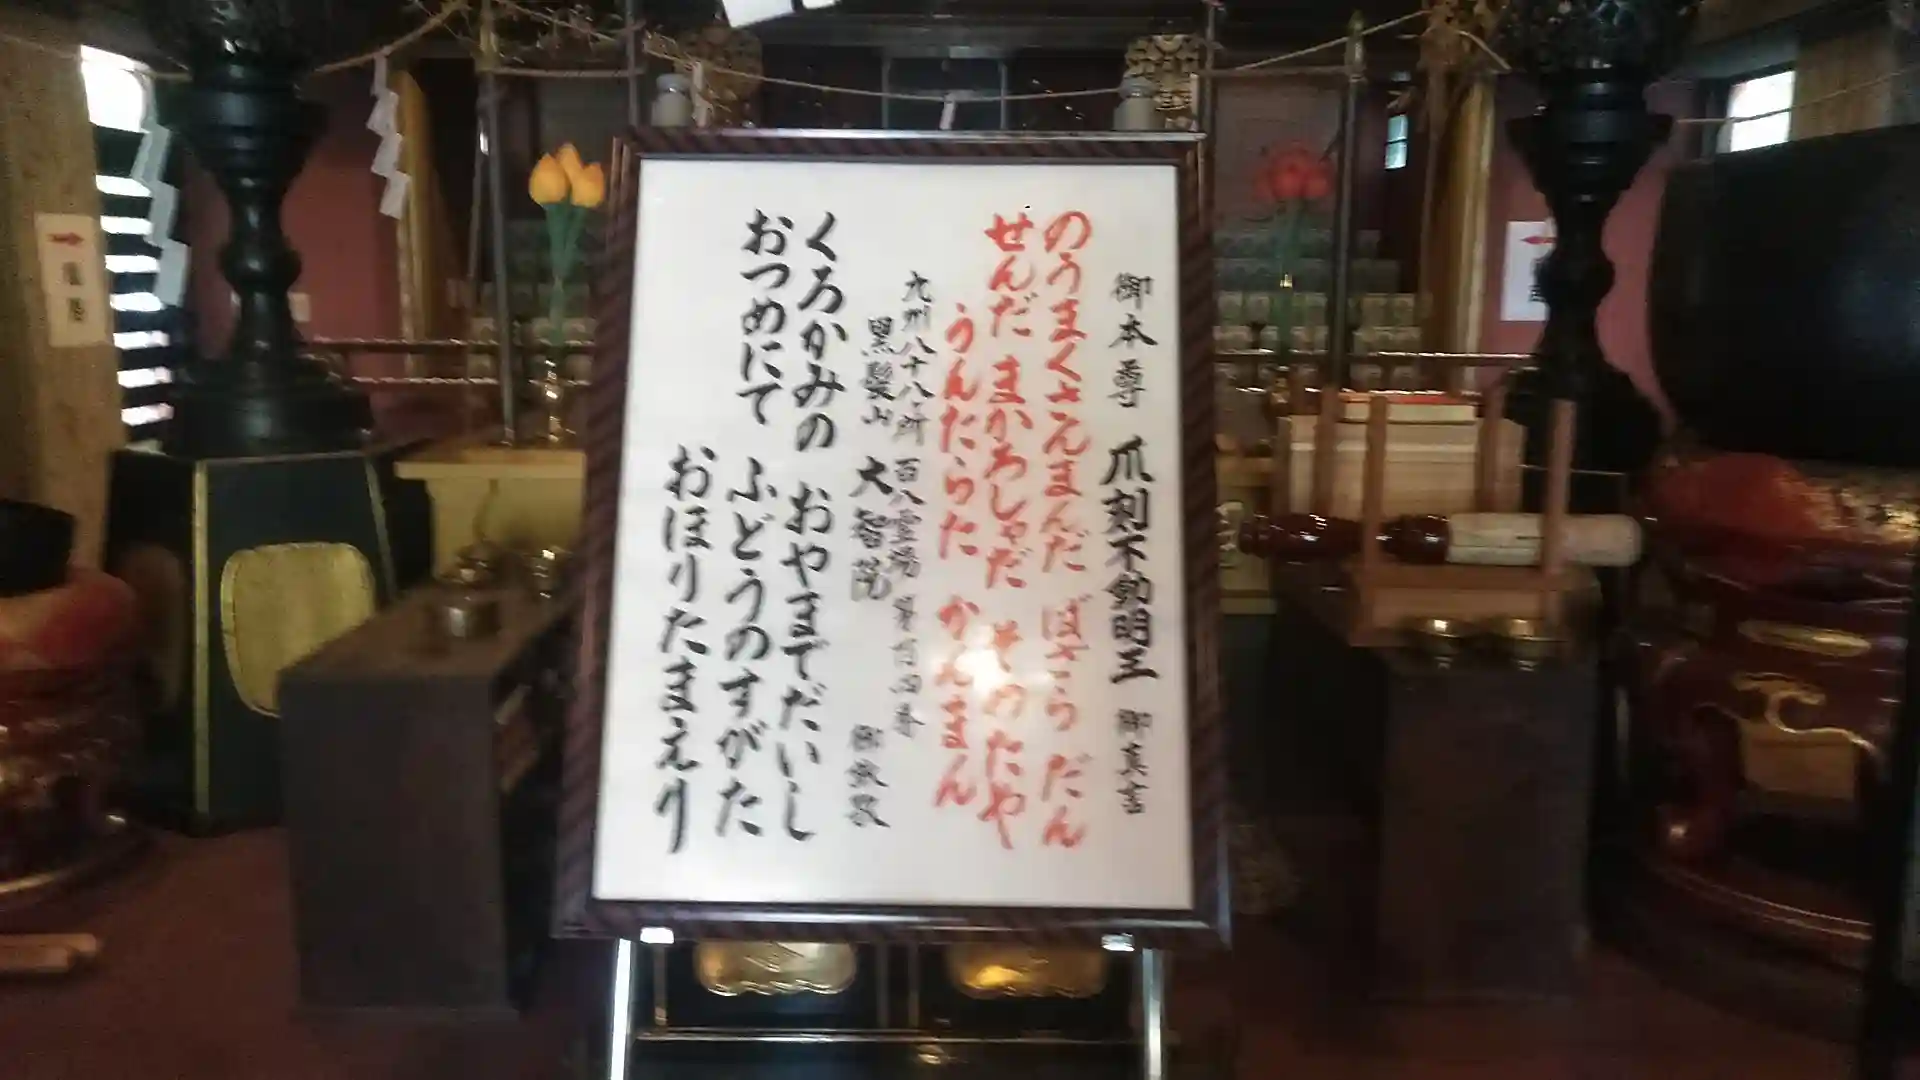 御本尊 爪刻不動明王 御真言
のうまくさんまんだ ばさら だん
せんだ まかろしゃだ そわたや
うんたらた かんまん
九州八十八ヶ所 百八霊場 第百四番
黒髪山 大智院 御詠歌
くろかみの おやまでだいし
おつめにて ふどうのすがた
おほりたまえり